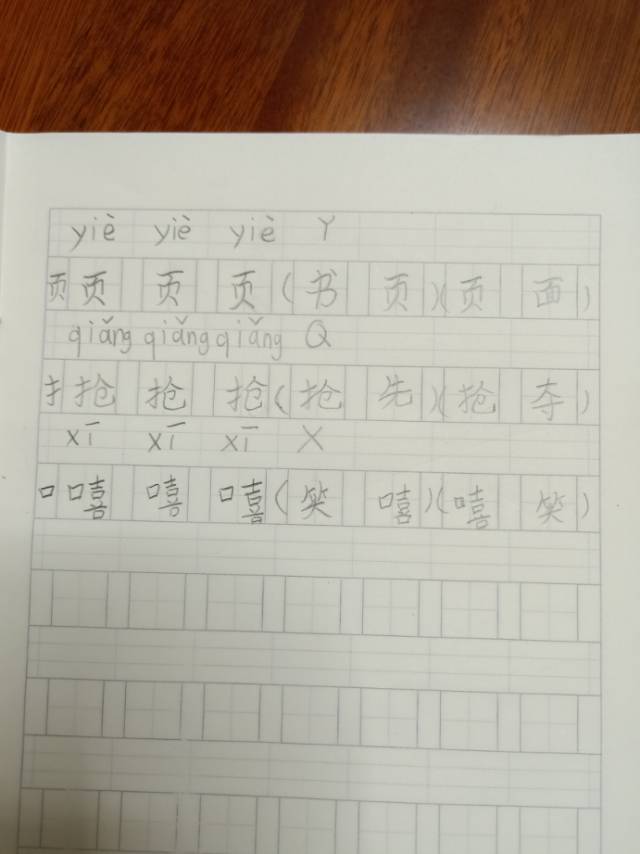 yiè yiè yiè Y
页页 页 页(书 页)(页 面)
qiǎng qiǎng qiǎng Q
扌抢 抢 抢(抢 先)(抢 夺)
xī xī xī X
口嘻 嘻 嘻(笑 嘻)(嘻 笑)